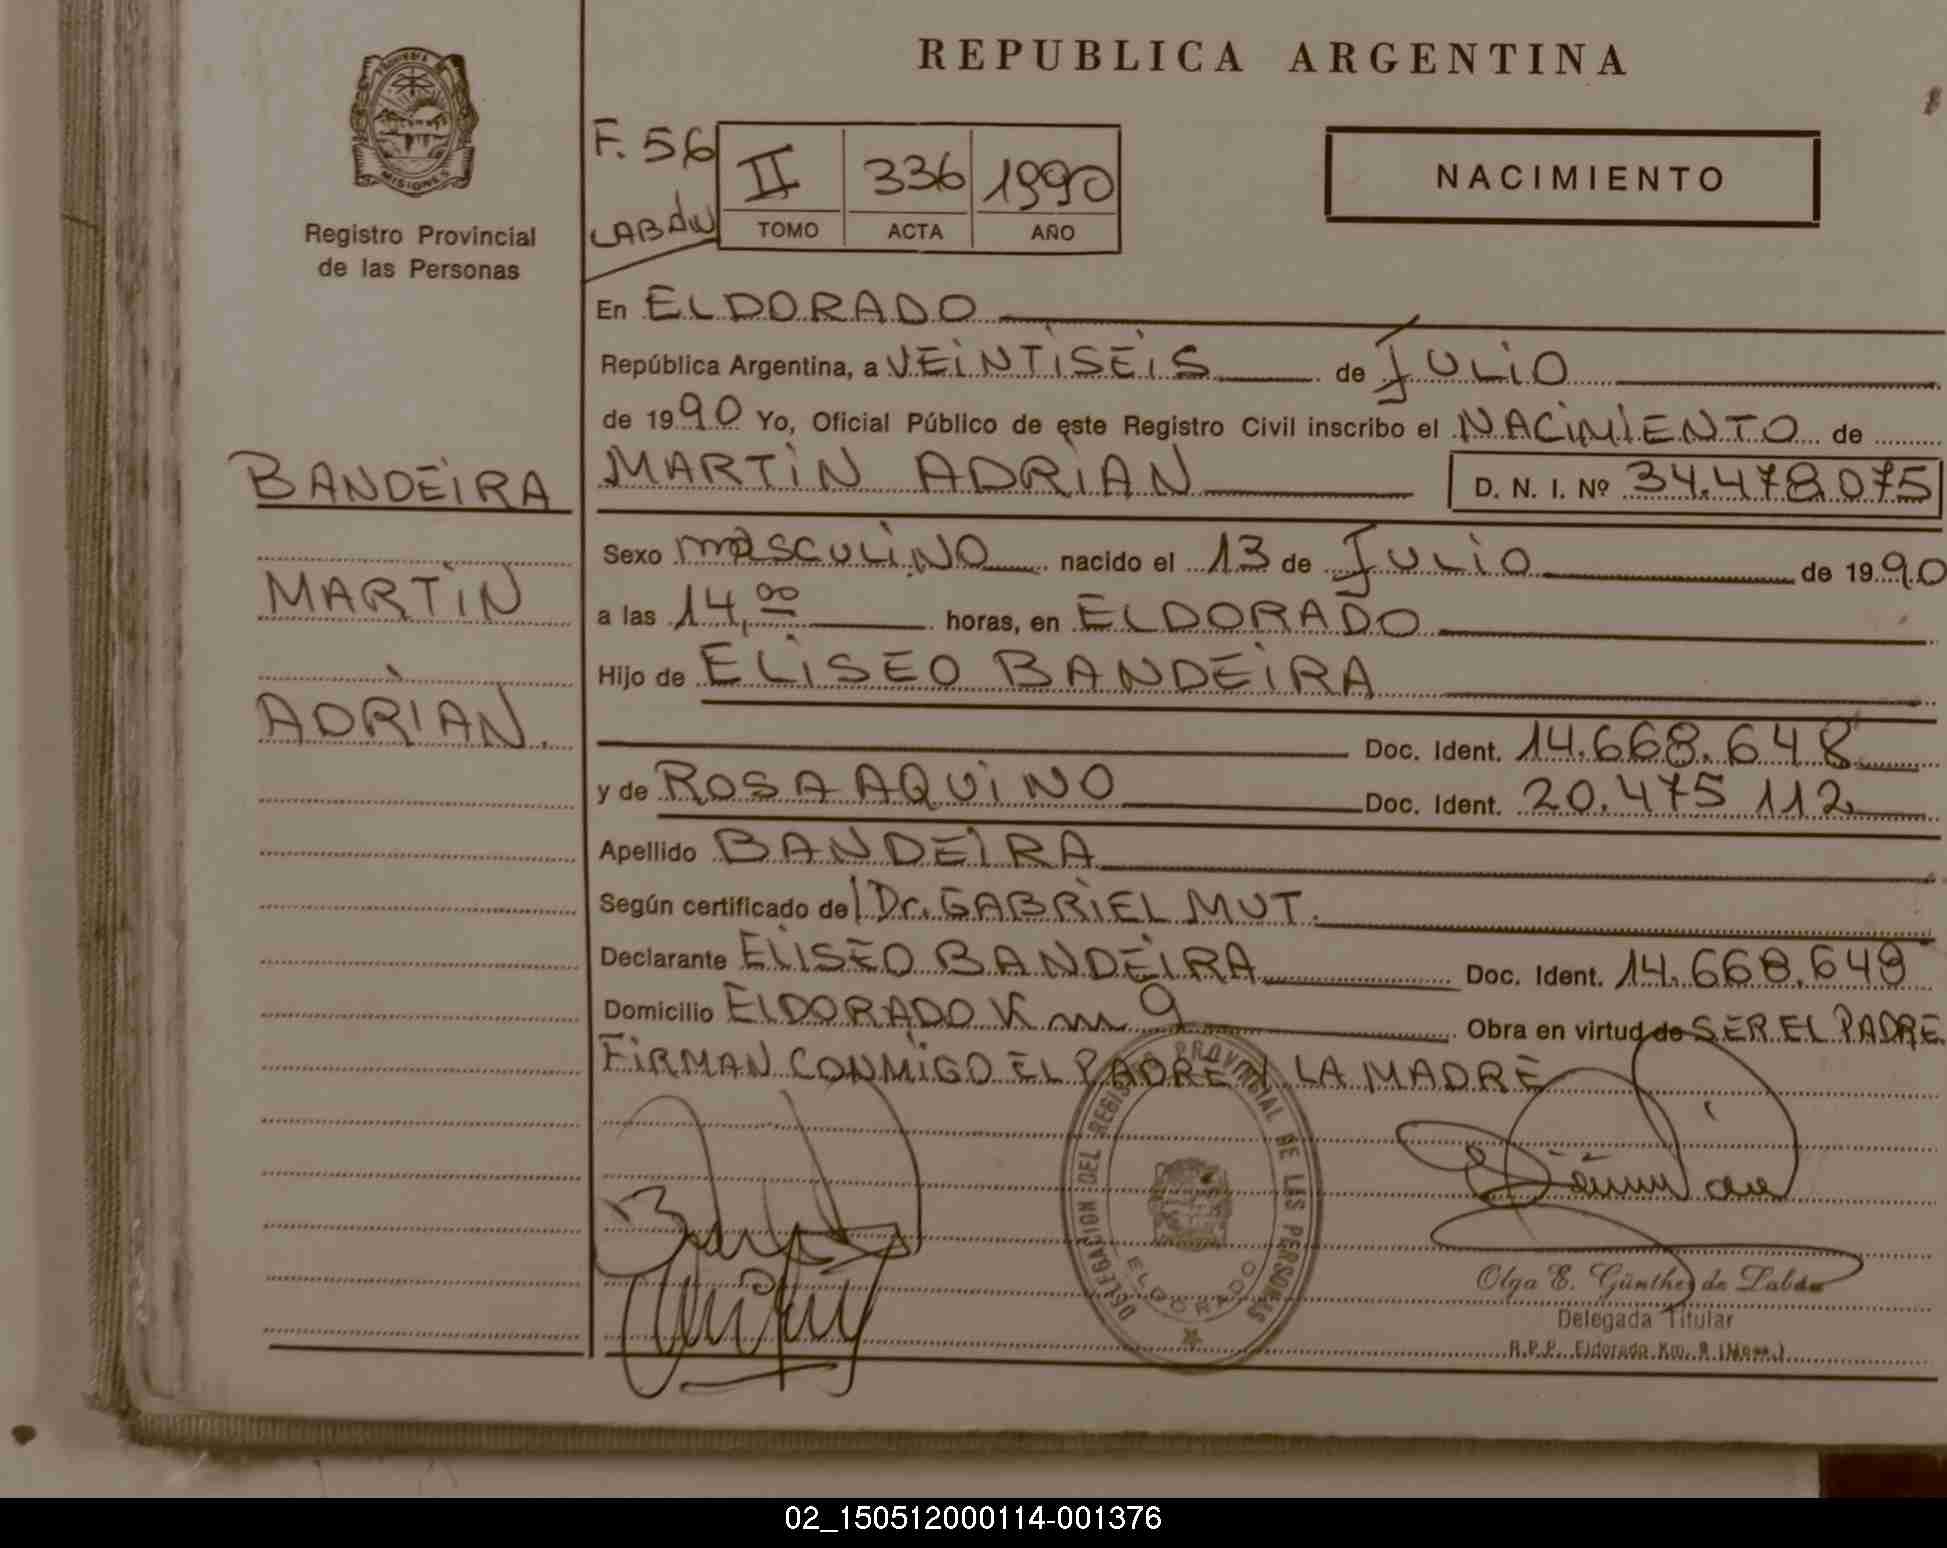 REPUBLICA ARGENTINA
PROVINCIA DE
MISIONES
Registro Provincial
de las Personas
F. 56
LABÁN
II 336 1990
TOMO ACTA AÑO
NACIMIENTO
En ELDORADO
República Argentina, a VEINTISEIS de JULIO
de 1990 Yo, Oficial Público de este Registro Civil inscribo el NACIMIENTO de
MARTIN ADRIAN D. N. I. Nº 34.478.075
BANDEIRA
MARTIN
ADRIAN.
Sexo masculino nacido el 13 de JULIO de 1990
a las 14,00 horas, en ELDORADO
Hijo de ELISEO BANDEIRA
Doc. Ident. 14.668.648
y de ROSA AQUINO Doc. Ident. 20.475 112
Apellido BANDEIRA
Según certificado de Dr. GABRIEL MUT.
Declarante ELISEO BANDEIRA Doc. Ident. 14.668.648
Domicilio ELDORADO Km 9 Obra en virtud de SER EL PADRE.
FIRMAN CONMIGO EL PADRE Y LA MADRE
DELEGACION DEL REGISTRO PROVINCIAL DE LAS PERSONAS
ELDORADO
Olga E. Günther de Labán
Delegada Titular
R.P.P. Eldorado Km. 9 (Mnes.)
02_150512000114-001376